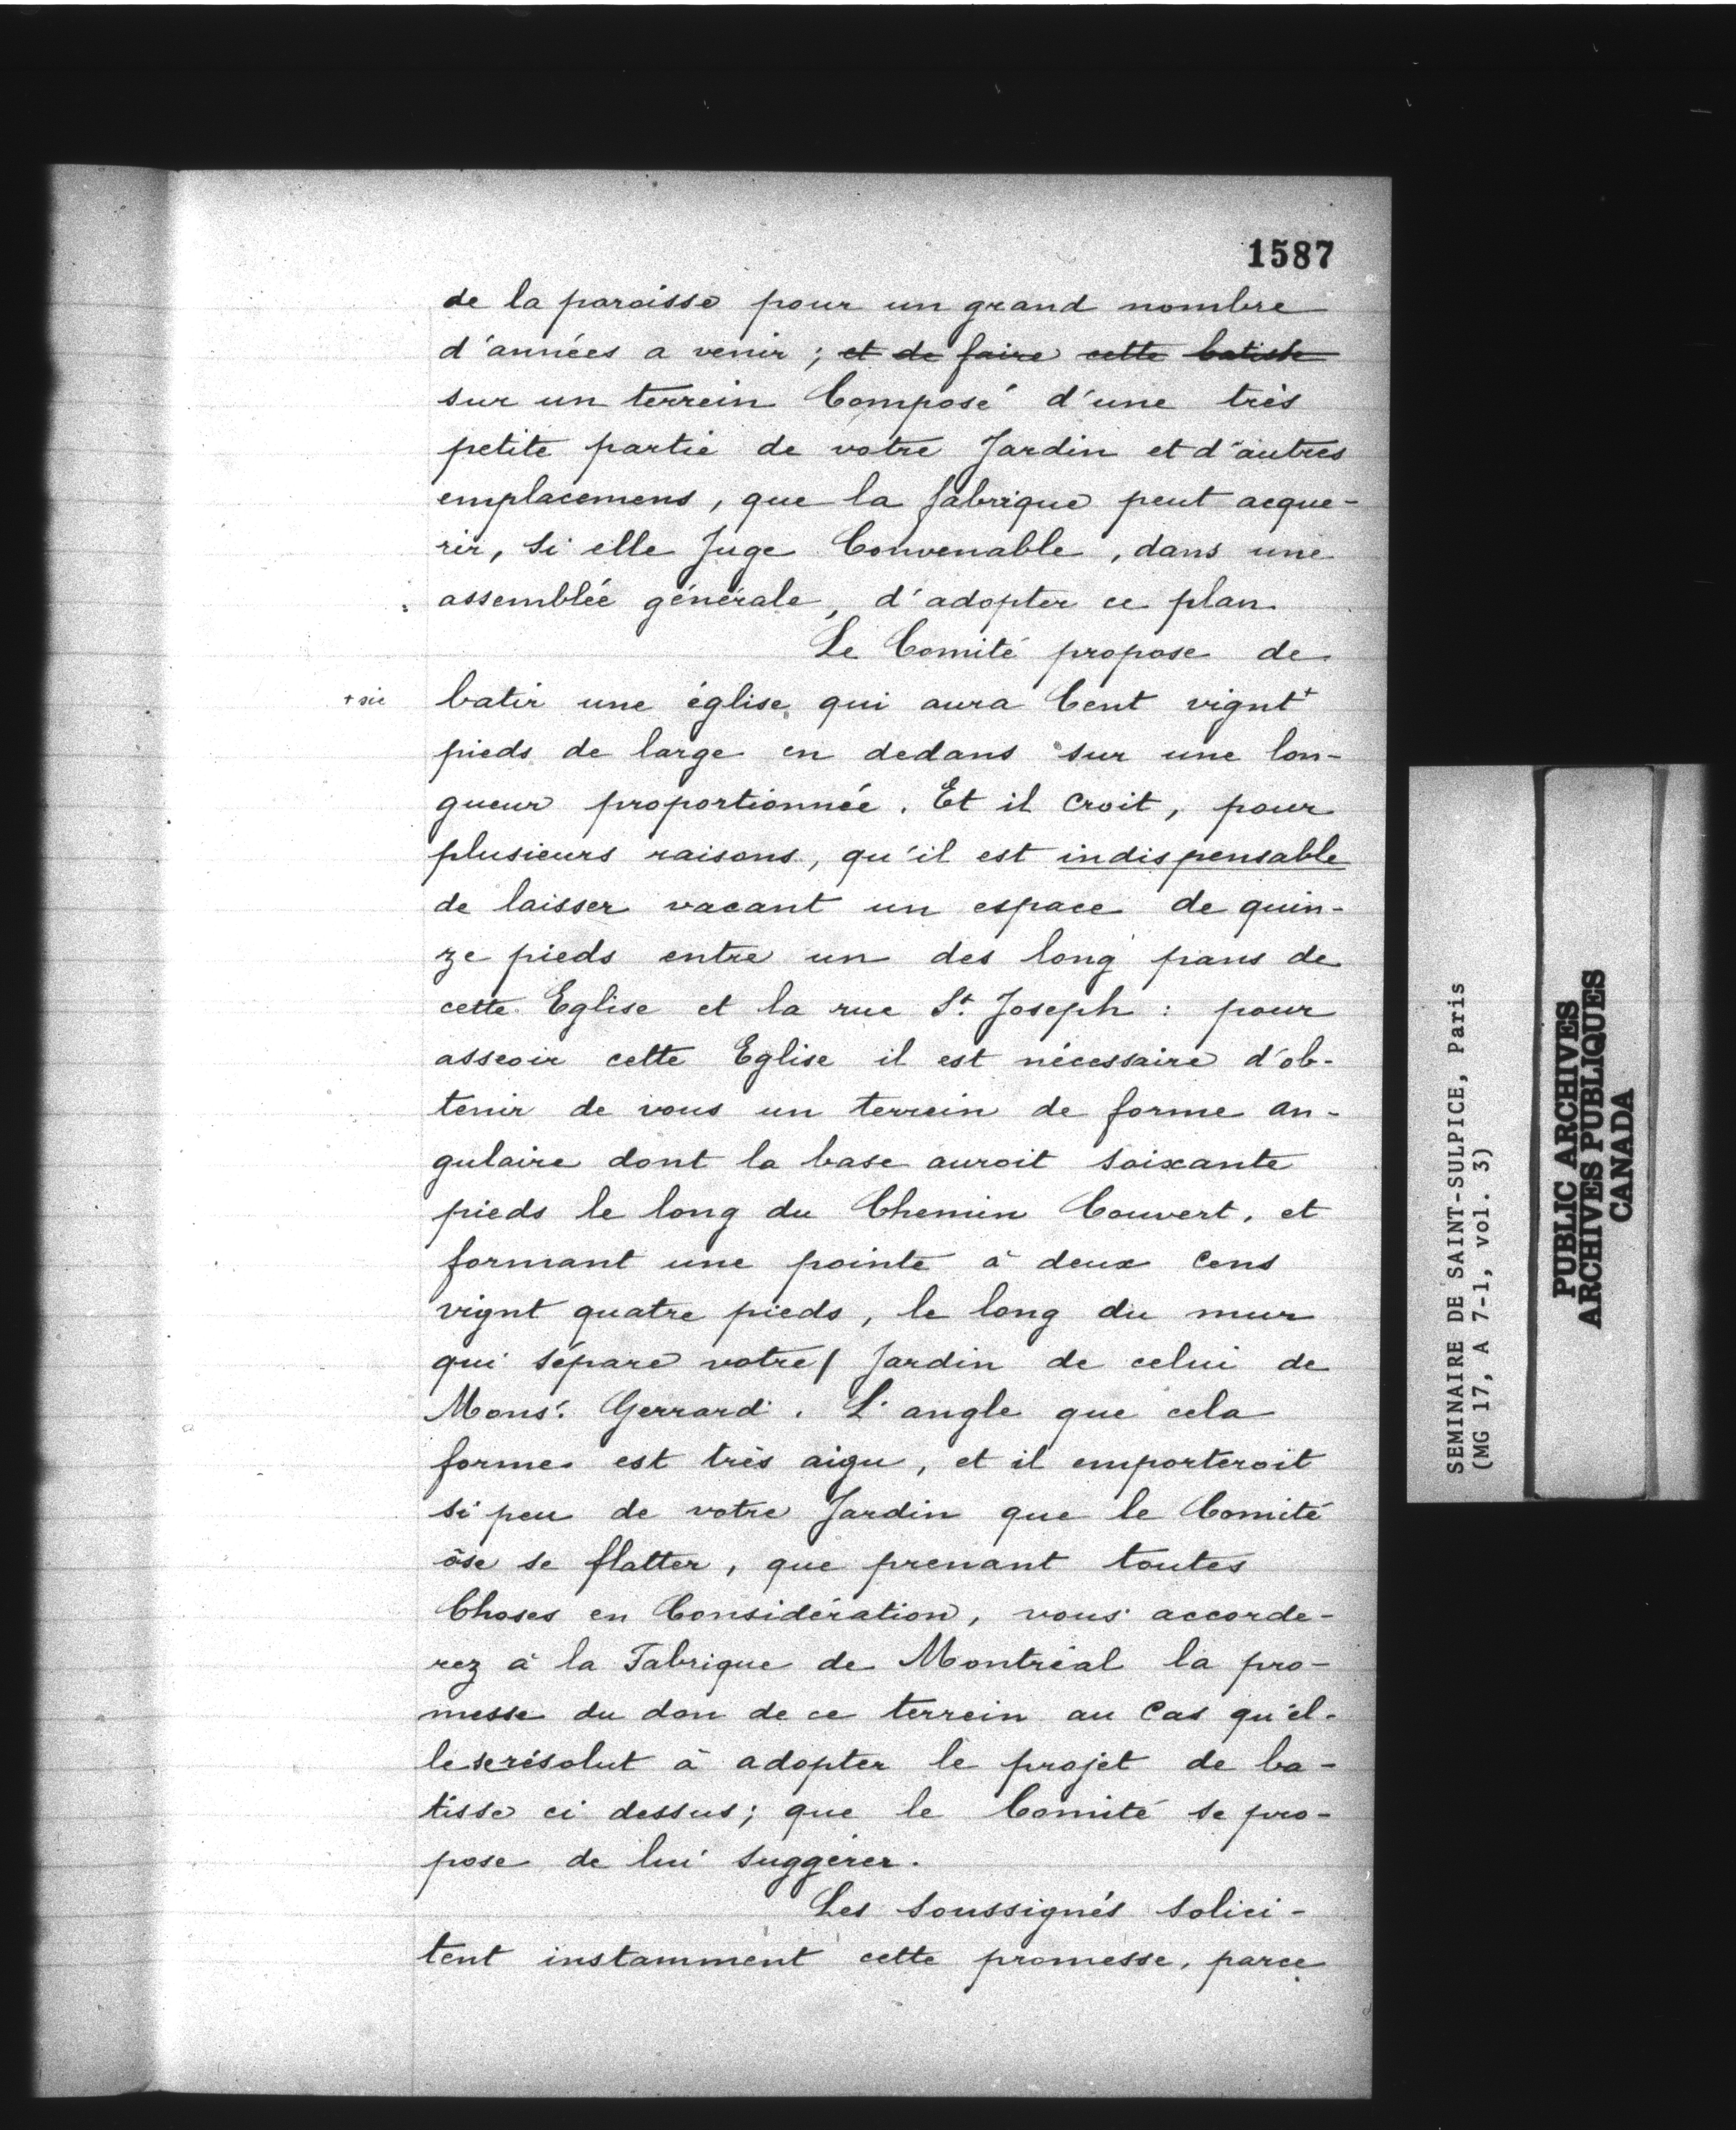 1587
de la paroisse pour un grand nombre
d'années a venir ; et de faire cette batisse
sur un terrein Composé d'une très
petite partie de votre Jardin et d'autres
emplacemens, que la fabrique peut acque-
rir, si elle Juge Convenable, dans une
assemblée générale, d'adopter ce plan.
Le Comité propose de
+ sic
batir une église, qui aura Cent vignt+
pieds de large en dedans sur une lon-
gueur proportionnée. Et il croit, pour
plusieurs raisons, qu'il est indispensable
de laisser vacant un espace de quin-
ze pieds entre un des long pans de
cette Eglise et la rue St. Joseph : pour
asseoir cette Eglise il est nécessaire d'ob-
tenir de vous un terrein de forme an-
gulaire dont la base auroit soixante
pieds le long du Chemin Couvert, et
formant une pointe à deux cens
vignt quatre pieds, le long du mur
qui sépare votre/ Jardin de celui de
Monsr. Gerrard. L'angle que cela
forme est très aigu, et il emporteroit
si peu de votre Jardin que le Comité
ôse se flatter, que prenant toutes
Choses en Considération, vous accorde-
rez à la Fabrique de Montréal la pro-
messe du don de ce terrein au Cas qu'el-
le se résolut à adopter le projet de ba-
tisse ci dessus; que le Comité se pro-
pose de lui suggérer.
Les soussignés solici-
tent instamment cette promesse, parce
SEMINAIRE DE SAINT-SULPICE, Paris
(MG 17, A 7-1, vol. 3)
PUBLIC ARCHIVES
ARCHIVES PUBLIQUES
CANADA